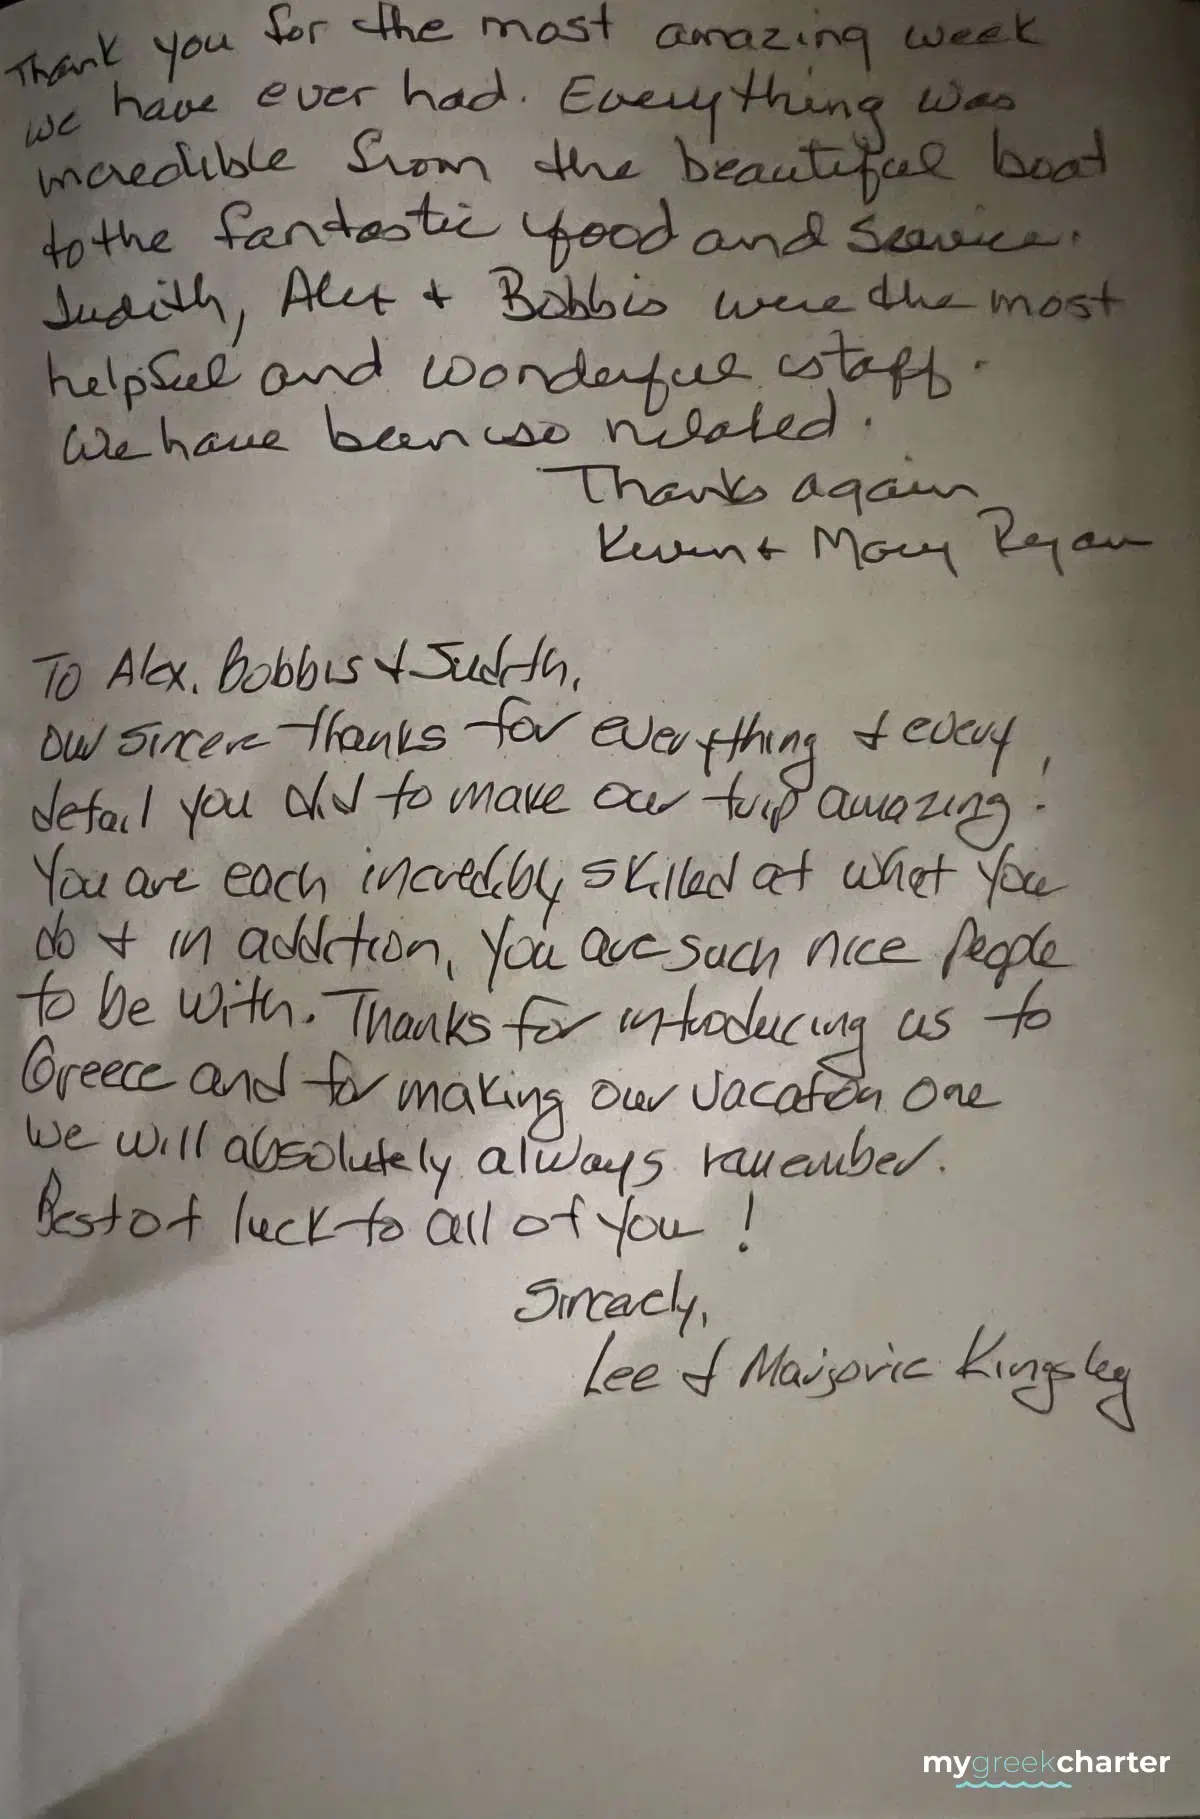 Thank you for the most amazing week
we have ever had. Everything was
incredible from the beautiful boat
to the fantastic food and service.
Judith, Alex + Bobbis were the most
helpful and wonderful staff.
We have been so relaxed.
Thanks again
Kevin + Mary Ryan
To Alex, Bobbis + Judith,
Our sincere thanks for everything + every
detail you did to make our trip amazing!
You are each incredibly skilled at what you
do + in addition, you are such nice people
to be with. Thanks for introducing us to
Greece and for making our vacation one
we will absolutely always remember.
Best of luck to all of you!
Sincerely,
Lee & Marjorie Kingsley
mygreekcharter